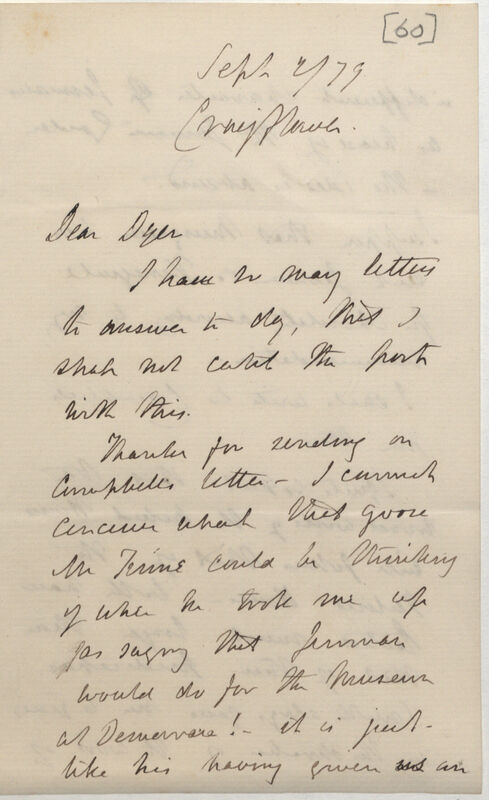 [60]
Sept 2/79
Craigflower.
Dear Dyer
I have so many letters
to answer to day, that I
shall not catch the post
with this.
Thanks for sending on
Campbells letter – I cannot
conceive what that goose
Mr could be thinking
of when he took me up
as saying that Jenman
would do for the Museum
at Demerara! – it is just
like his having given us an